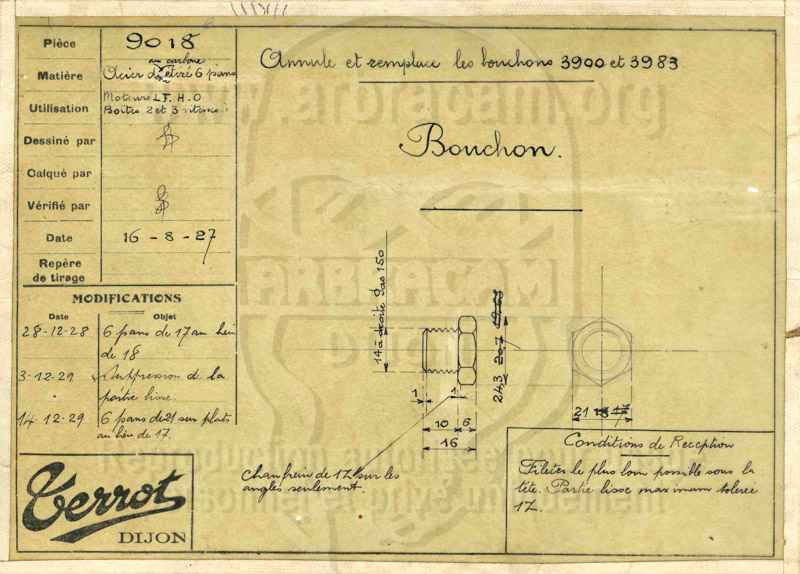 Pièce 9018
Matière Acier au carbone étiré 6 pans
Utilisation Moteurs LF. H.O
Boîtes 2 et 3 vitesses
Dessiné par
Calqué par
Vérifié par
Date 16-8-27
Repère
de tirage
MODIFICATIONS
Date Objet
28-12-28 6 pans de 17 au lieu
de 18
3-12-29 Suppression de la
partie lisse.
14-12-29 6 pans de 21 sur plats
au lieu de 17.
Terrot
DIJON
Annule et remplace les bouchons 3900 et 3983
Bouchon.
14 à droite pas 150
24,3 20,7
1 1
10 6
16
21 18 17
Chanfrein de 1 sur les
angles seulement.
Conditions de Reception
Fileter le plus loin possible sous la
tête. Partie lisse maximum tolérée
www.arbracam.org
ARBRACAM
Dijon